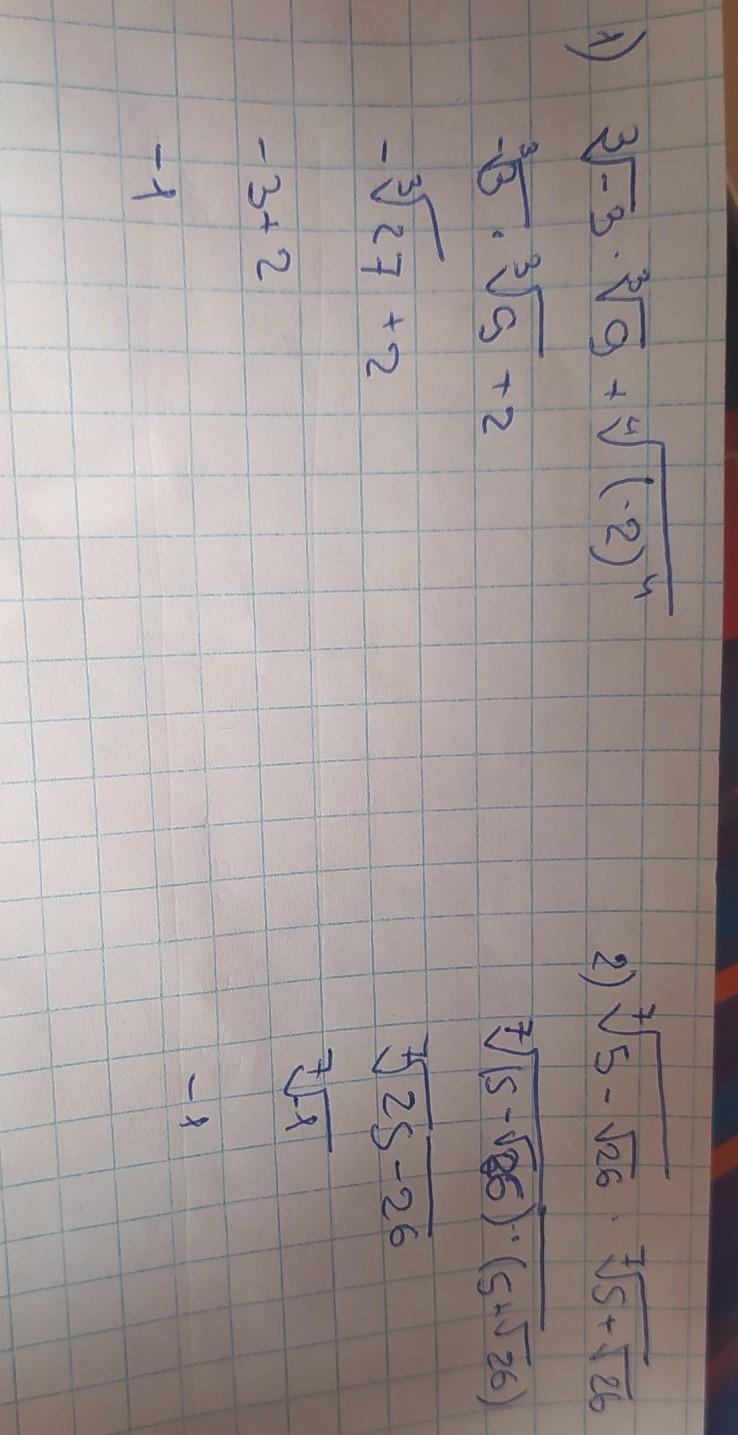 1) ∛-3 · ∛9 + ∜(-2)⁴
-∛3 · ∛9 + 2
-∛27 + 2
-3+2
-1
2) ⁷√5-√26 · ⁷√5+√26
⁷√(5-√26)·(5+√26)
⁷√25-26
⁷√-1
-1